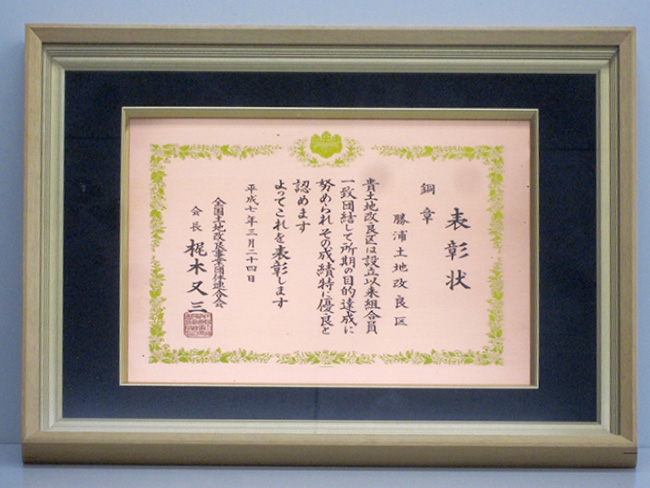 表彰状
銅章
勝浦土地改良区
貴土地改良区は設立以来組合員
一致団結して所期の目的達成に
努められその成績特に優良と
認めます
よってこれを表彰します
平成七年三月二十四日
全国土地改良事業団体連合会
会長 梶木又三